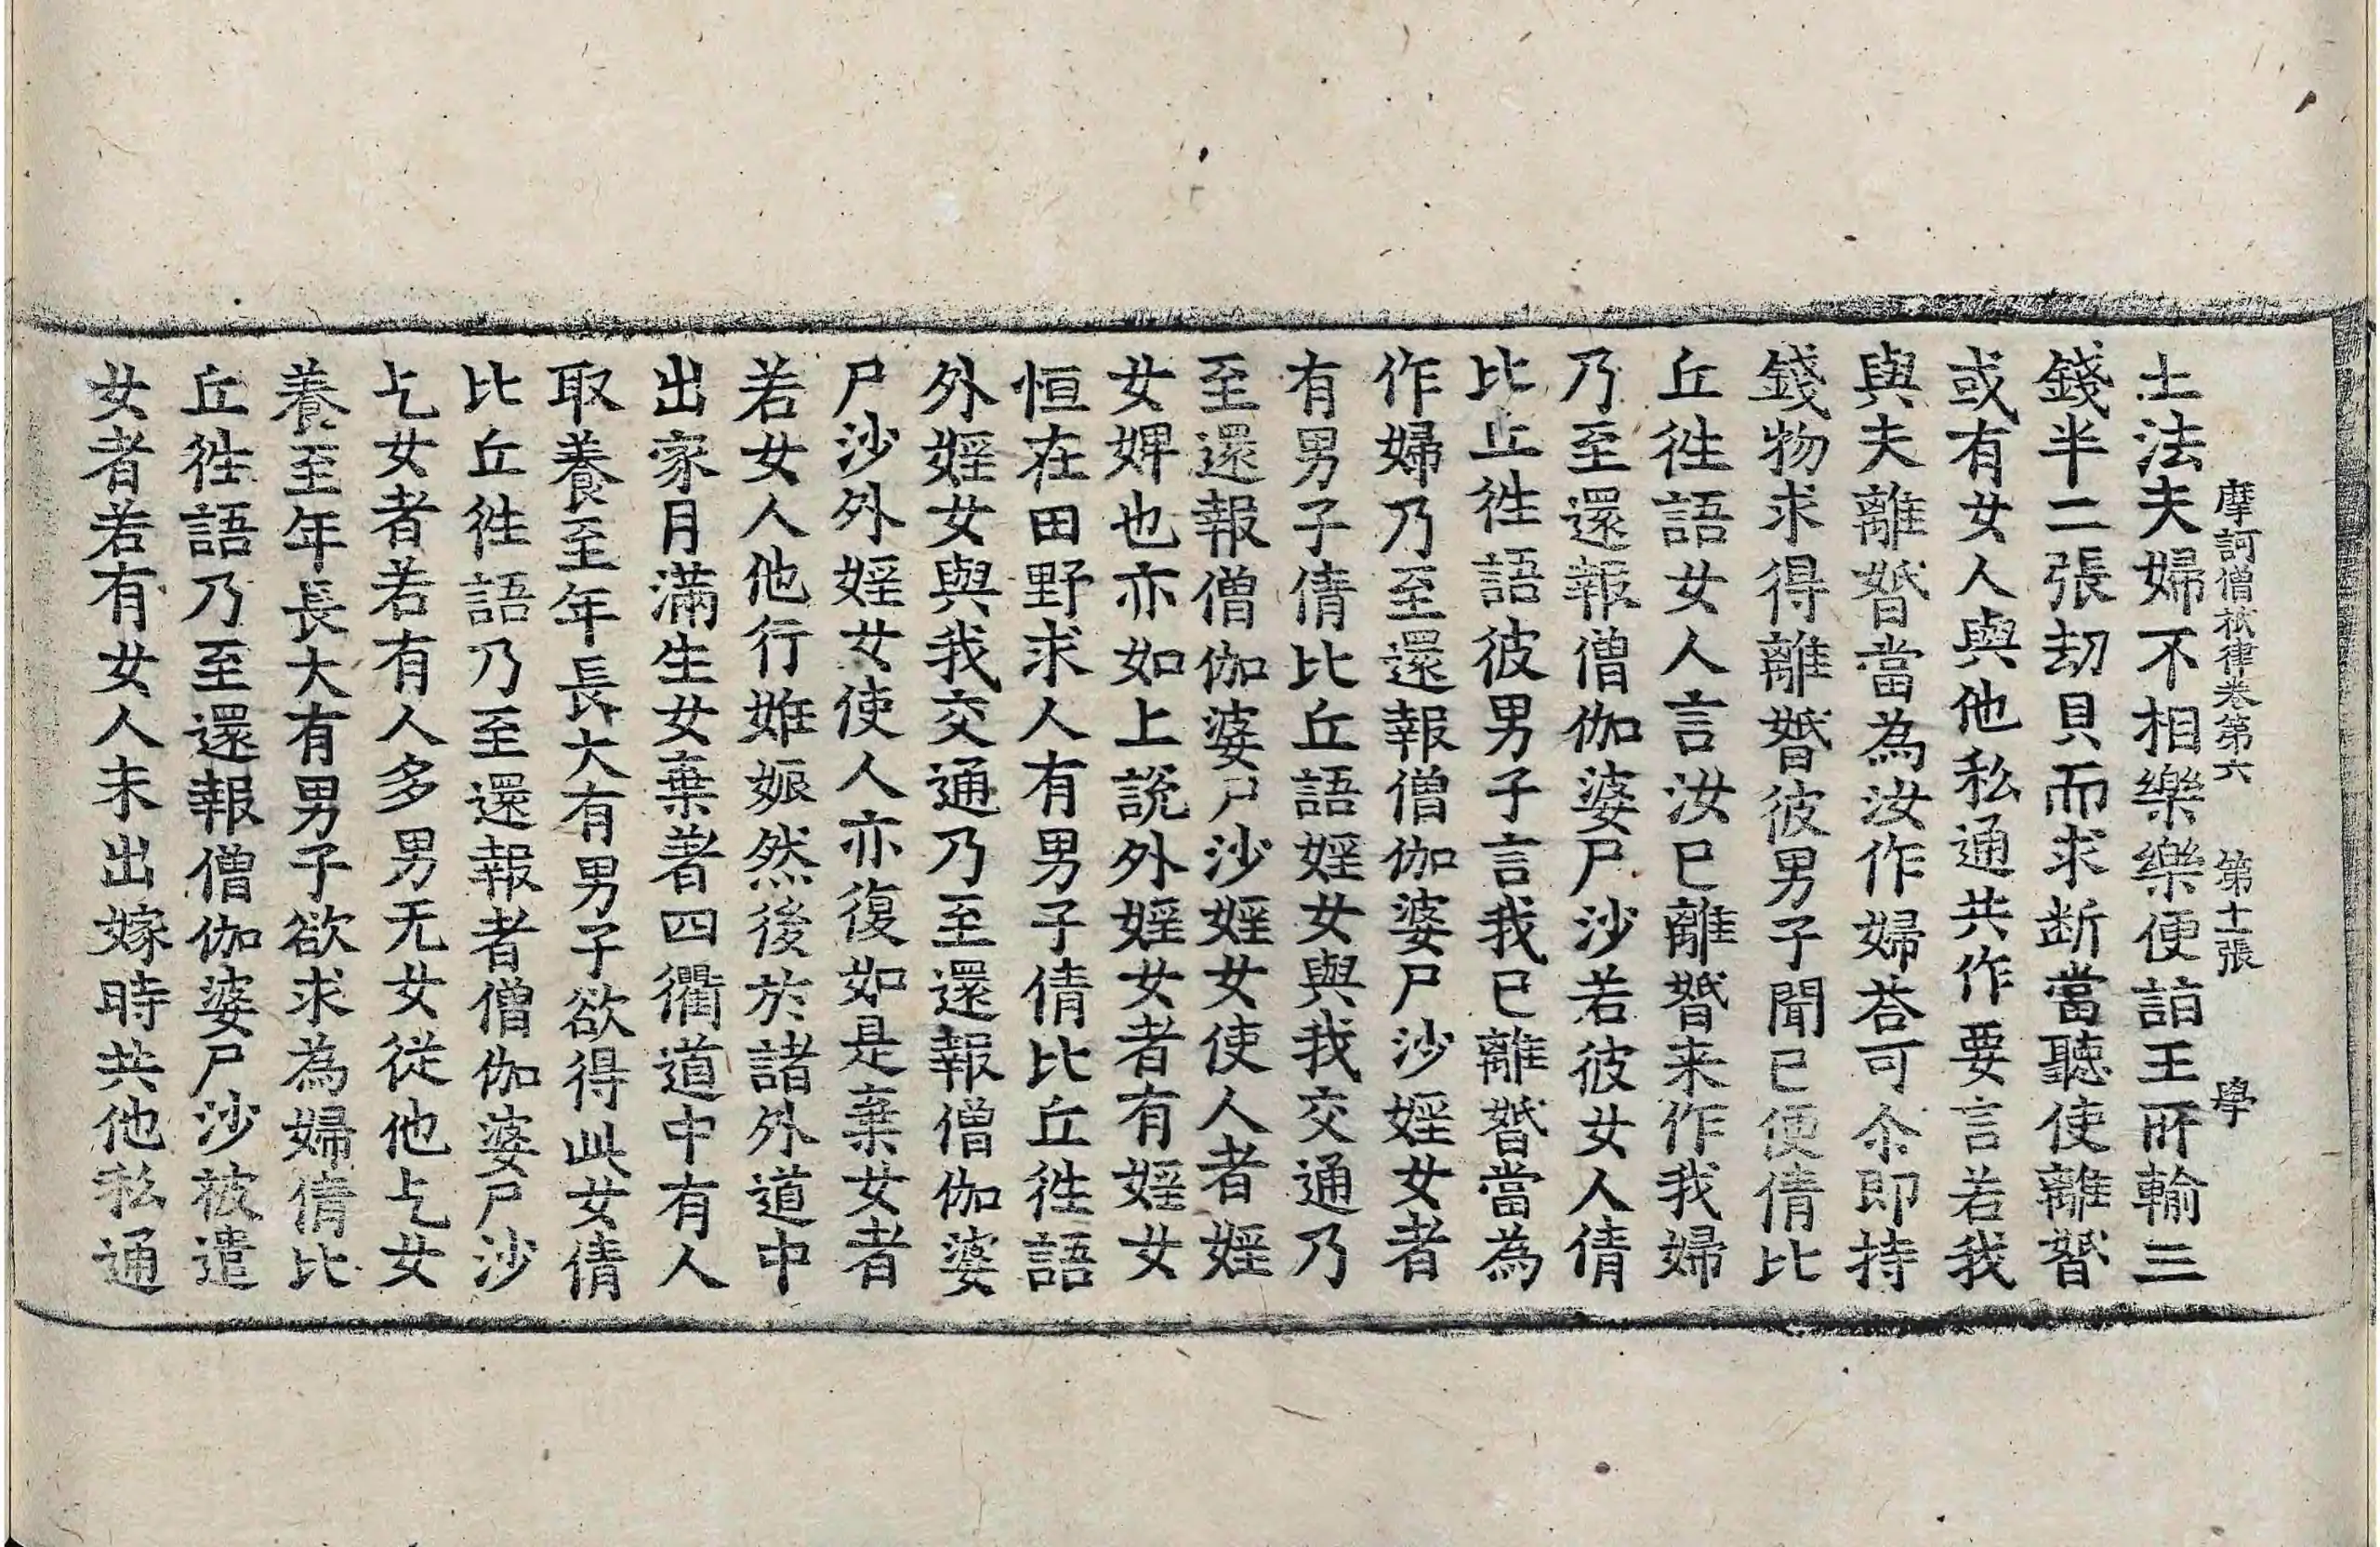 摩訶僧祇律卷第六 第十一張 學
土法夫婦不相樂樂便詣王所輸三
錢半二張劫貝而求断當聽使離㛰
或有女人與他私通共作要言若我
與夫離㛰當為汝作婦荅可尒即持
錢物求得離㛰彼男子聞已便倩比
丘徃語女人言汝已離㛰来作我婦
乃至還報僧伽婆尸沙若彼女人倩
比丘徃語彼男子言我已離㛰當為
作婦乃至還報僧伽婆尸沙婬女者
有男子倩比丘語婬女與我交通乃
至還報僧伽婆尸沙婬女使人者婬
女婢也亦如上說外婬女者有婬女
恒在田野求人有男子倩比丘徃語
外婬女與我交通乃至還報僧伽婆
尸沙外婬女使人亦復如是棄女者
若女人他行姙娠然後於諸外道中
出家月滿生女棄著四衢道中有人
取養至年長大有男子欲得此女倩
比丘徃語乃至還報者僧伽婆尸沙
乞女者若有人多男无女従他乞女
養至年長大有男子欲求為婦倩比
丘徃語乃至還報僧伽婆尸沙被遣
女者若有女人未出嫁時共他私通